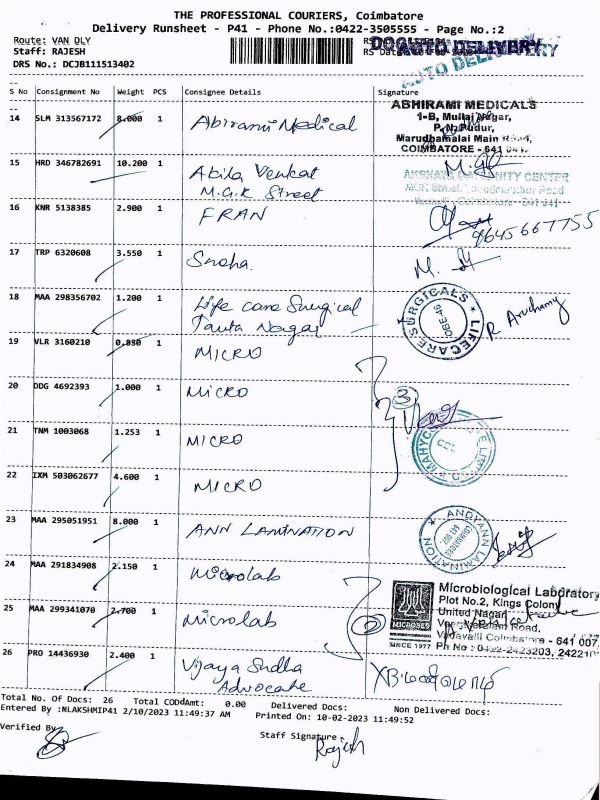 THE PROFESSIONAL COURIERS, Coimbatore
Delivery Runsheet - P41 - Phone No.:0422-3505555 - Page No.:2
Route: VAN DLY
Staff: RAJESH
DRS No.: DCJB111513402
AUTO DELIVERY
AUTO DELIVERY
S No Consignment No Weight PCS Consignee Details Signature
14 SLM 313567172 8.000 1 Abirami Medical
ABHIRAMI MEDICALS
1-B, Mullai Nagar,
P.N.Pudur,
Marudhamalai Main Road,
COIMBATORE - 641 041
15 HRD 346782691 10.200 1 Abila Venkat
M.G.R Street
MATERNITY CENTER
16 KNR 5138385 2.900 1 FRAN
9645667755
17 TRP 6320608 3.550 1 Sneha.
18 MAA 298356702 1.200 1 Life care Surgical
Tanta Nagar
LIFECARE SURGICALS
CBE-46
19 VLR 3160210 0.830 1 MICRO
20 DDG 4692393 1.000 1 MICRO
3
21 TNM 1003068 1.253 1 MICRO
22 IXM 503062677 4.600 1 MICRO
23 MAA 295051951 8.000 1 ANN LAMINATION
ANDYANN LAMINATION
24 MAA 291834908 2.150 1 Microlab
25 MAA 299341070 2.700 1 Microlab
2
Microbiological Laboratory
Plot No.2, Kings Colony
United Nagar,
Road,
Vadavalli Coimbatore - 641 007
Ph No : 0422-2423203,
SINCE 1977
26 PRO 14436930 2.400 1 Vijaya Sudha
Advocate
Total No. Of Docs: 26 Total CODAmt: 0.00 Delivered Docs: Non Delivered Docs:
Entered By :NLAKSHMIP41 2/10/2023 11:49:37 AM Printed On: 10-02-2023 11:49:52
Verified By
Staff Signature
Rajesh